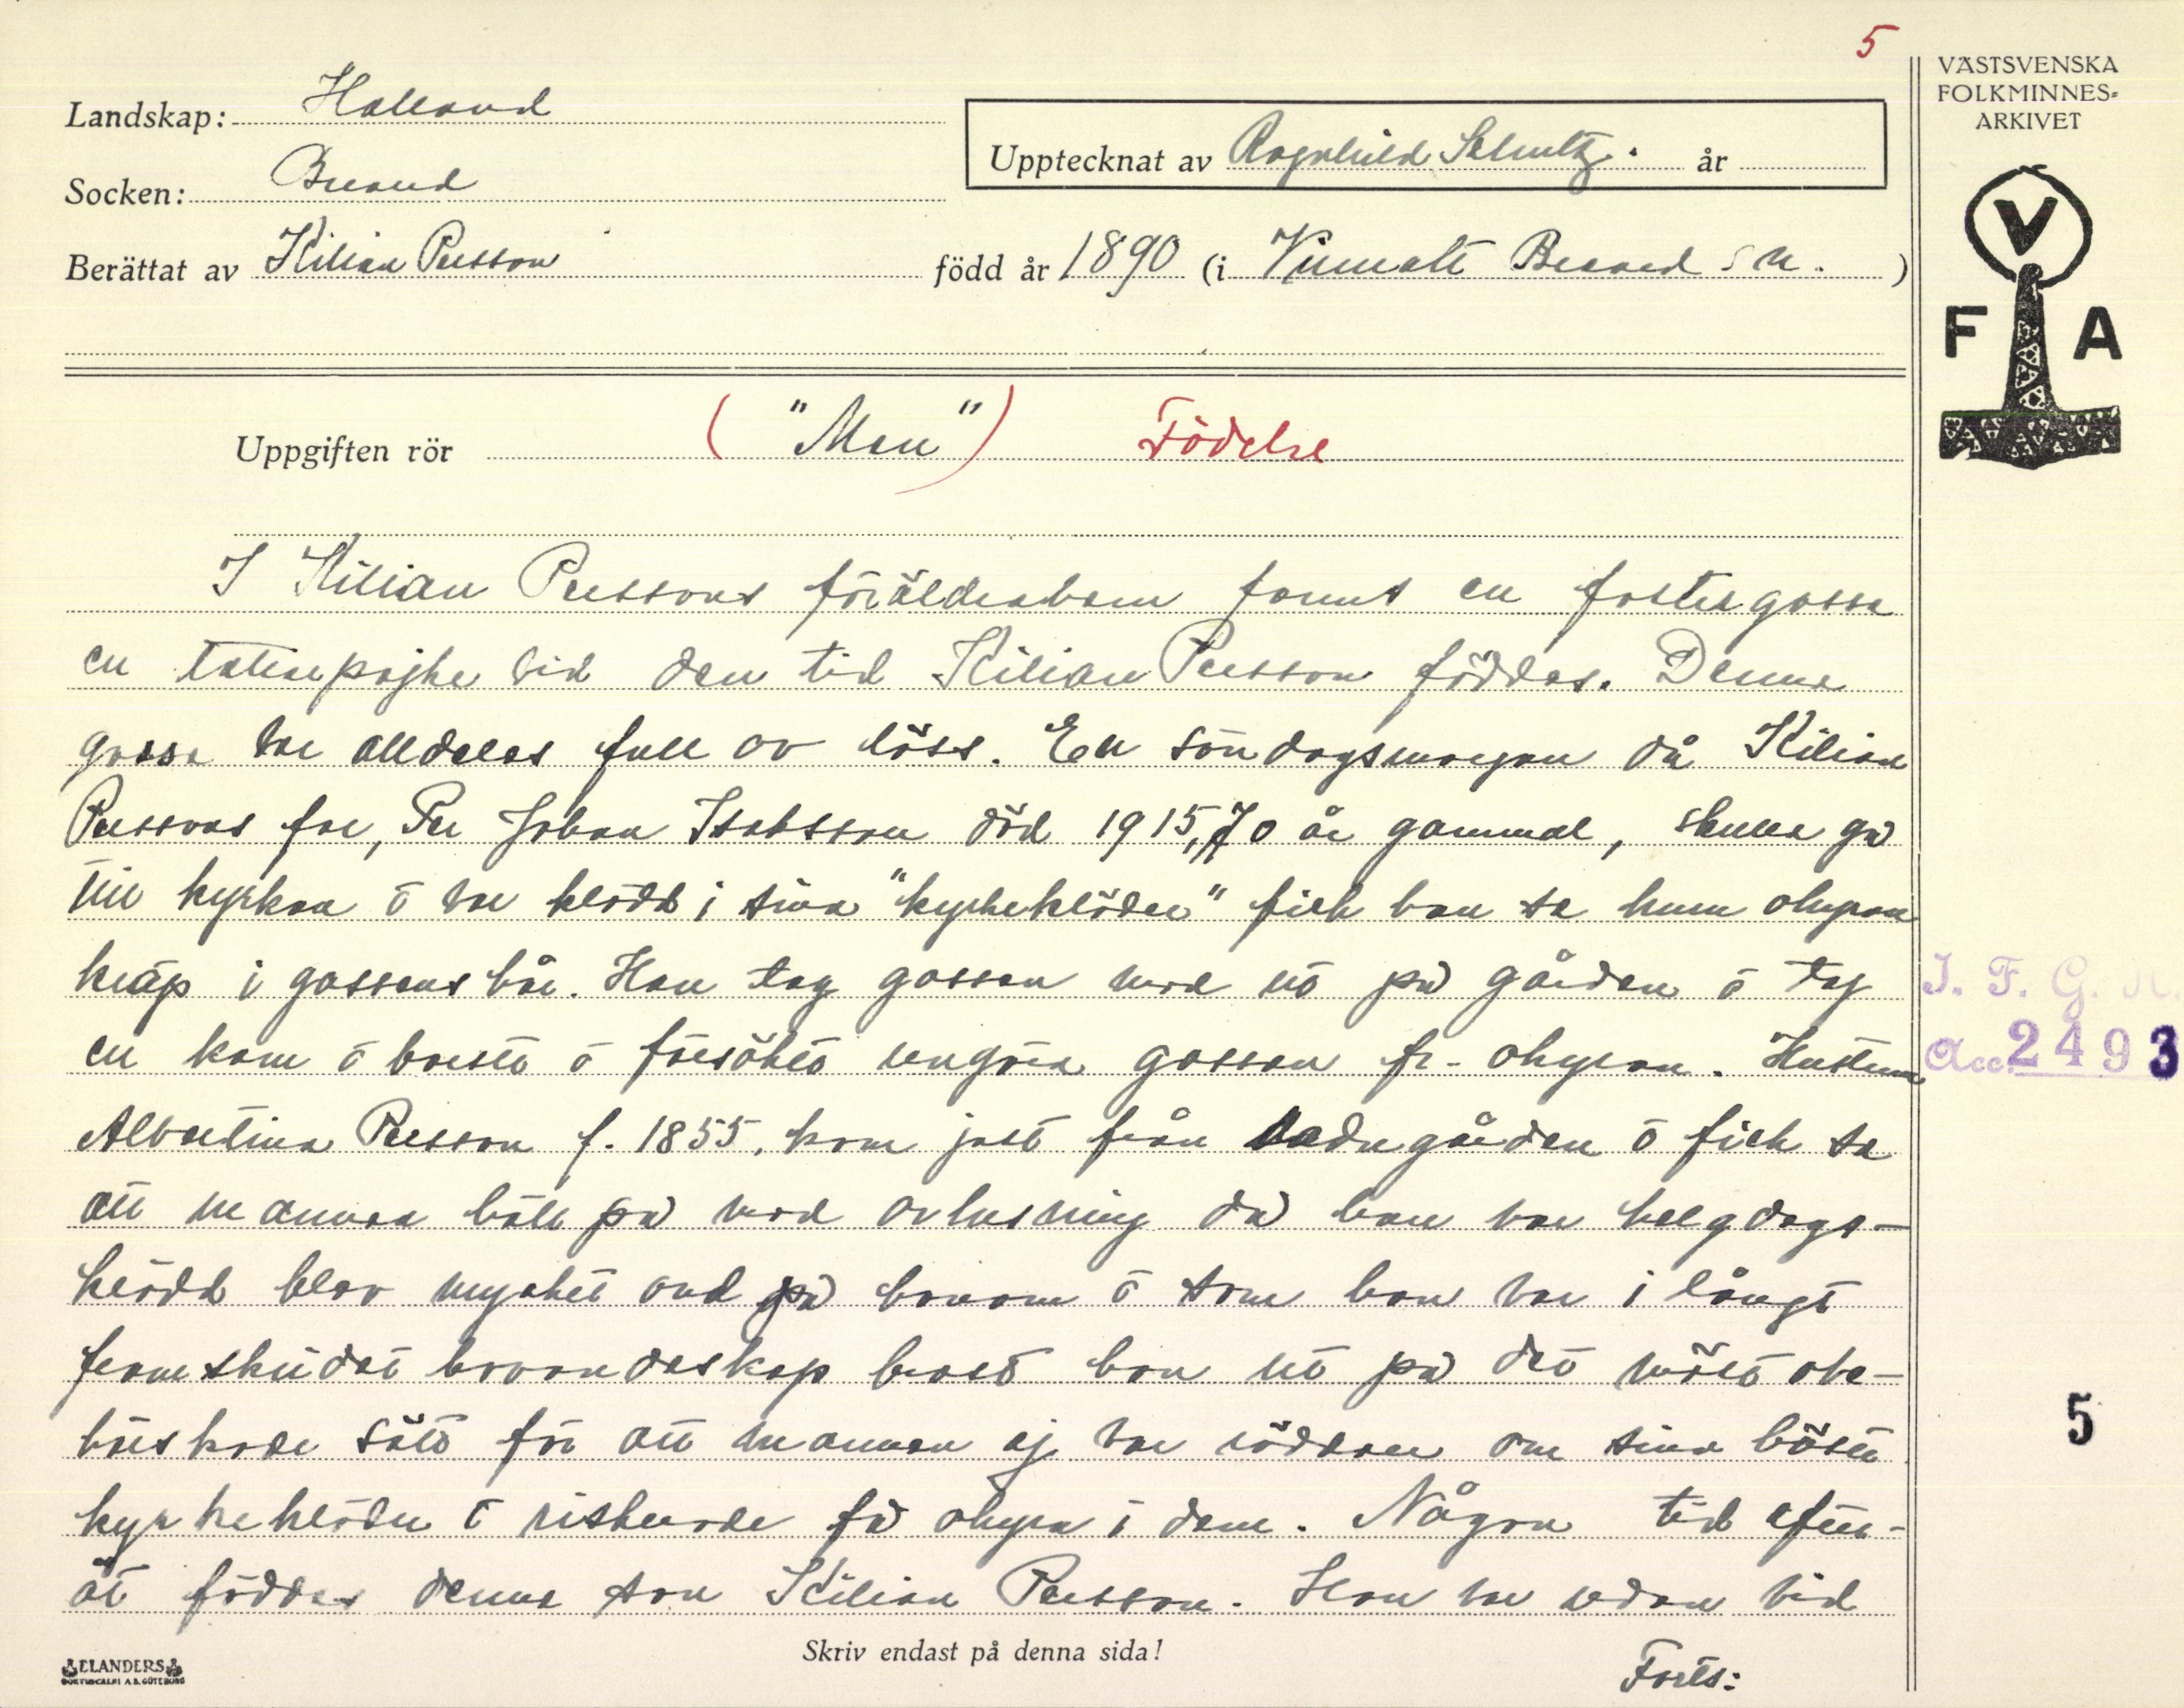 5
VÄSTSVENSKA
FOLKMINNES-
ARKIVET
Landskap: Halland
Upptecknat av Ragnhild Schultz. år
Socken: Breared
Berättat av Kilian Persson född år 1890 (i Breared sn. )
V
F A
Uppgiften rör ("Men") Födelse
I Kilian Perssons föräldrahem fanns en fostergosse
en tattarepojke vid den tid Kilian Persson föddes. Denna
gosse var alldeles full av löss. En söndagsmorgon då Kilian
Perssons far, Per Johan Isaksson död 1915, 70 år gammal, skulle gå
till kyrkan o var klädd i sina "kyrkekläder" fick han se hur ohyran
kröp i gossens hår. Han tog gossen med ut på gården o tog
en kam o borste o försökte rengöra gossen fr. ohyran. Hustrun
Albertina Persson f. 1855, kom just från ladugården o fick se
att mannen höll på med avlusning då han var helgdags-
klädd blev mycket ond på honom o som hon var i långt
framskridet havandeskap brast hon ut på det mest obe-
härskade sätt för att mannen ej var räddare om sina bästa
kyrkekläder o riskerade få ohyra i dem. Någon tid efter-
åt föddes denne son Kilian Persson. Han var redan vid
I. F. G. H.
Acc. 2493
5
ELANDERS
BOKTRYCKERI A.B. GÖTEBORG
Skriv endast på denna sida!
Forts: